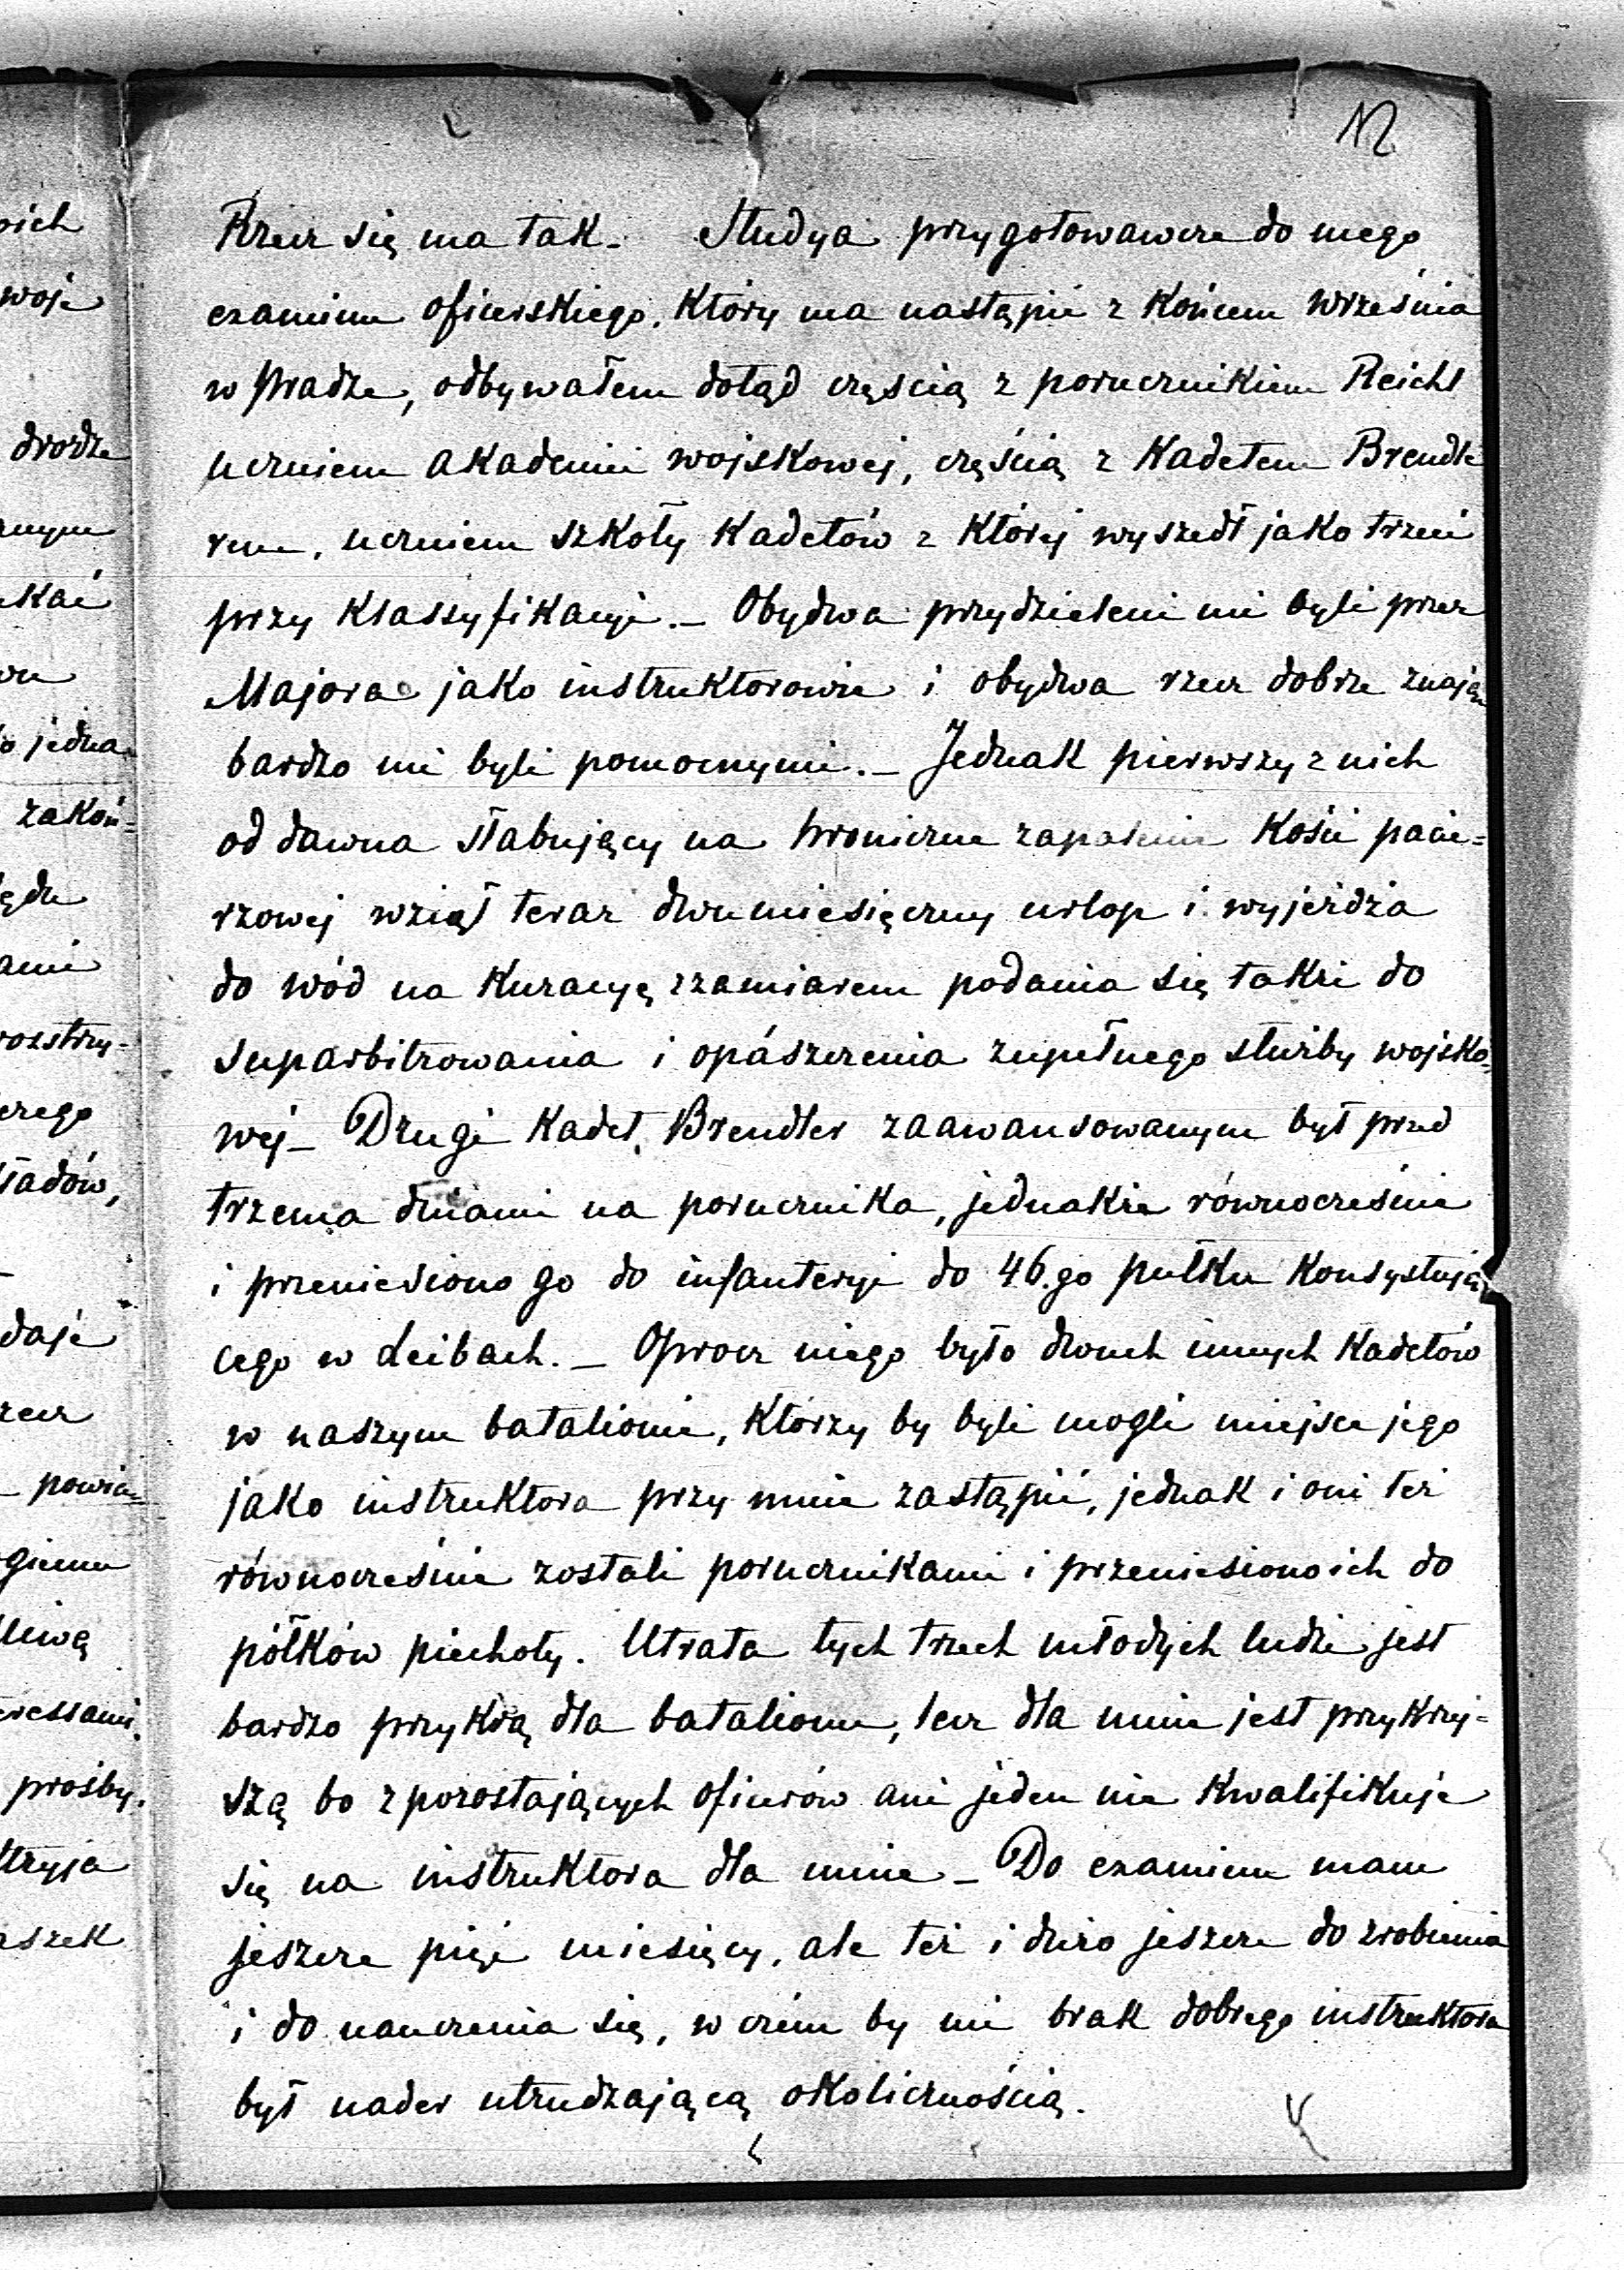 12
Rzecz się ma tak. Studya przygotowawcze do mego
examinu oficerskiego, który ma nastąpić z końcem września
w Pradze, odbywałem dotąd częścią z porucznikiem Reichl
uczniem akademii wojskowej, częścią z kadetem Brendle
rem, uczniem szkoły kadetów z której wyszedł jako trzeci
przy klassyfikacyi. — Obydwa przydzieleni mi byli przez
Majora jako instruktorowie i obydwa rzecz dobrze znając
bardzo mi byli pomocnymi. — Jednak pierwszy z nich
od dawna słabujący na hroniczne zapalenie kości pacie=
rzowej wziął teraz dwumiesięczny urlop i wyjeżdża
do wód na kuracyę z zamiarem podania się także do
suparbitrowania i opászczenia zupełnego służby wojsko=
wéj — Drugi kadet, Brendler zaawansowanym był przed
trzema dniami na porucznika, jednakże równocześnie
i przeniesiono go do infanteryi do 46.go pułku konsystują=
cego w Leibach. — Oprocz niego było dwuch innych kadetów
w naszym batalionie, którzy by byli mogli miejsce jego
jako instruktora przy mnie zastąpić, jednak i oni też
równocześnie zostali porucznikami i przeniesiono ich do
półków piechoty. Utrata tych trzech młodych ludzi jest
bardzo przykrą dla batalionu, lecz dla mnie jest przykrzej=
szą bo z pozostających oficerów ani jeden nie kwalifikuje
się na instruktora dla mnie — Do examinu mam
jeszcze pięć miesięcy, ale też i dużo jeszcze do zrobienia
i do nauczenia się, w czém by mi brak dobrego instruktora
był nader utrudzającą okolicznością.